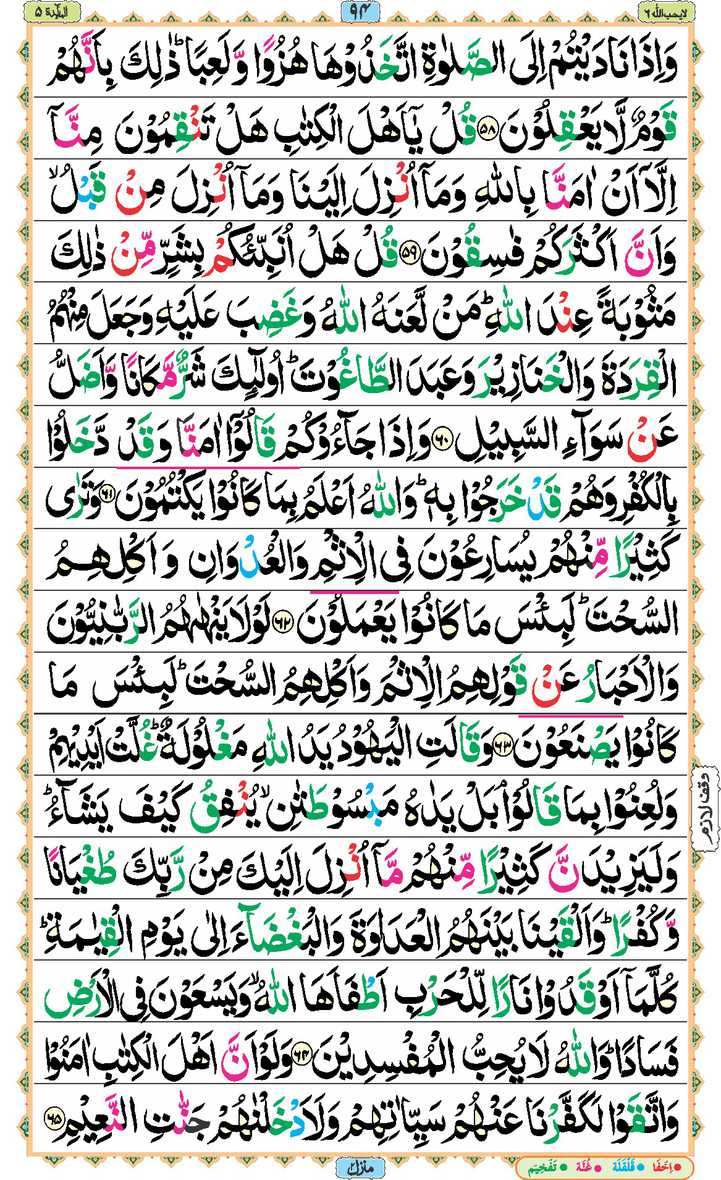 لايحب الله ٦
٩٤
المآىِٕدة ٥
وَاِذَا نَادَيْتُمْ اِلَى الصَّلٰوةِ اتَّخَذُوْهَا هُزُوًا وَّلَعِبًا ؕ ذٰلِكَ بِاَنَّهُمْ
قَوْمٌ لَّا يَعْقِلُوْنَ ﴿۵۸﴾ قُلْ يٰۤاَهْلَ الْكِتٰبِ هَلْ تَنْقِمُوْنَ مِنَّاۤ
اِلَّاۤ اَنْ اٰمَنَّا بِاللّٰهِ وَمَاۤ اُنْزِلَ اِلَيْنَا وَمَاۤ اُنْزِلَ مِنْ قَبْلُ ۙ
وَاَنَّ اَكْثَرَكُمْ فٰسِقُوْنَ ﴿۵۹﴾ قُلْ هَلْ اُنَبِّئُكُمْ بِشَرٍّ مِّنْ ذٰلِكَ
مَثُوْبَةً عِنْدَ اللّٰهِ ؕ مَنْ لَّعَنَهُ اللّٰهُ وَغَضِبَ عَلَيْهِ وَجَعَلَ مِنْهُمُ
الْقِرَدَةَ وَالْخَنَازِيْرَ وَعَبَدَ الطَّاغُوْتَ ؕ اُولٰٓىِٕكَ شَرٌّ مَّكَانًا وَّاَضَلُّ
عَنْ سَوَآءِ السَّبِيْلِ ﴿۶۰﴾ وَاِذَا جَآءُوْكُمْ قَالُوْۤا اٰمَنَّا وَقَدْ دَّخَلُوْا
بِالْكُفْرِ وَهُمْ قَدْ خَرَجُوْا بِهٖ ؕ وَاللّٰهُ اَعْلَمُ بِمَا كَانُوْا يَكْتُمُوْنَ ﴿۶۱﴾ وَتَرٰى
كَثِيْرًا مِّنْهُمْ يُسَارِعُوْنَ فِى الْاِثْمِ وَالْعُدْوَانِ وَاَكْلِهِمُ
السُّحْتَ ؕ لَبِئْسَ مَا كَانُوْا يَعْمَلُوْنَ ﴿۶۲﴾ لَوْلَا يَنْهٰىهُمُ الرَّبّٰنِيُّوْنَ
وَالْاَحْبَارُ عَنْ قَوْلِهِمُ الْاِثْمَ وَاَكْلِهِمُ السُّحْتَ ؕ لَبِئْسَ مَا
كَانُوْا يَصْنَعُوْنَ ﴿۶۳﴾ وَقَالَتِ الْيَهُوْدُ يَدُ اللّٰهِ مَغْلُوْلَةٌ ؕ غُلَّتْ اَيْدِيْهِمْ
وَلُعِنُوْا بِمَا قَالُوْا ۘ بَلْ يَدٰهُ مَبْسُوْطَتٰنِ ۙ يُنْفِقُ كَيْفَ يَشَآءُ ؕ
وقف لازم
وَلَيَزِيْدَنَّ كَثِيْرًا مِّنْهُمْ مَّاۤ اُنْزِلَ اِلَيْكَ مِنْ رَّبِّكَ طُغْيَانًا
وَّكُفْرًا ؕ وَاَلْقَيْنَا بَيْنَهُمُ الْعَدَاوَةَ وَالْبَغْضَآءَ اِلٰى يَوْمِ الْقِيٰمَةِ ؕ
كُلَّمَاۤ اَوْقَدُوْا نَارًا لِّلْحَرْبِ اَطْفَاَهَا اللّٰهُ ۙ وَيَسْعَوْنَ فِى الْاَرْضِ
فَسَادًا ؕ وَاللّٰهُ لَا يُحِبُّ الْمُفْسِدِيْنَ ﴿۶۴﴾ وَلَوْ اَنَّ اَهْلَ الْكِتٰبِ اٰمَنُوْا
وَاتَّقَوْا لَكَفَّرْنَا عَنْهُمْ سَيِّاٰتِهِمْ وَلَاَدْخَلْنٰهُمْ جَنّٰتِ النَّعِيْمِ ﴿۶۵﴾
منزل ٢
اِخفَا قَلقَلَة غُنَّة تَفخِيم